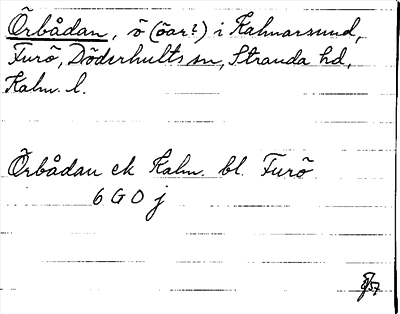 Örbådan, ö (öar?) i Kalmarsund,
Furö, Döderhults sn, Stranda hd,
Kalm. l.
Örbådan ek Kalm. bl. Furö
6 G 0 j